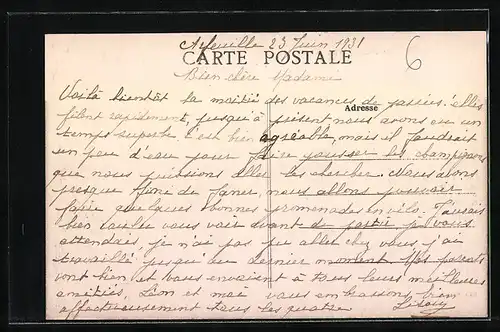 23 Juin 1931
6
CARTE POSTALE
Bien chère Madame
Voilà bientôt la moitié des vacances de passées, elles
Adresse
filent rapidement, jusqu'à présent nous avons eu un
temps superbe c'est bien agréable, mais il faudrait
un peu d'eau pour faire pousser les champignons
que nous puissions aller les chercher. Nous avons
presque nous allons pouvoir
faire quelques bonnes promenades en vélo. J'aurais
bien voulu vous voir avant de partir p. vous
attendais, je n'ai pas pu aller chez vous, j'ai
travaillé jusqu'au dernier moment. Mes parents
vont bien et vous envoient à tous leurs meilleures
amitiés, Léon et moi vous embrassons bien
affectueusement tous les quatre.